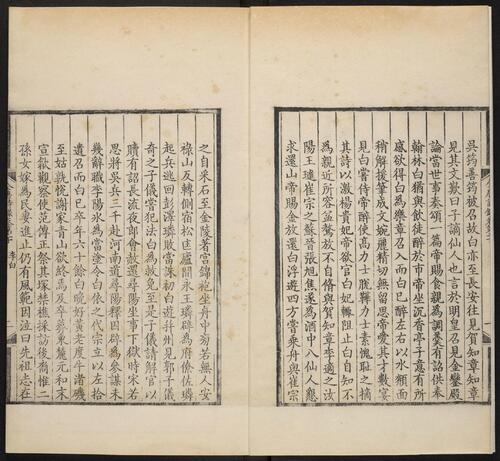 吳筠善筠被召故白亦至長安往見賀知章知章
見其文歎曰子謫仙人也言於明皇召見金鑾殿
論當世事奏頌一篇帝賜食親為調羹有詔供奉
翰林白猶與飲徒醉於市帝坐沉香亭子意有所
感欲得白為樂章召入而白已醉左右以水頮面
稍解援筆成文婉麗精切無留思帝愛其才數宴
見白嘗侍帝醉使高力士脫鞾力士素貴恥之摘
其詩以激楊貴妃帝欲官白妃輒阻止白自知不
為親近所容益驁放不自脩與賀知章李適之汝
陽王璡崔宗之蘇晉張旭焦遂為酒中八仙人懇
求還山帝賜金放還白浮遊四方嘗乘舟與崔宗
之自采石至金陵著宮錦袍坐舟中旁若無人安
祿山反轉側宿松匡廬間永王璘辟為府僚佐璘
起兵逃回彭澤璘敗當誅初白遊并州見郭子儀
奇之子儀嘗犯法白為救免至是子儀請解官以
贖有詔長流夜郎會赦還尋陽坐事下獄時宋若
思將吳兵三千赴河南道尋陽釋囚辟為參謀未
幾辭職李陽冰為當塗令白依之代宗立以左拾
遺召而白已卒年六十餘白晚好黃老度牛渚磯
至姑孰悅謝家青山欲終焉及卒葬東麓元和末
宣歙觀察使范傳正祭其塚禁樵採訪後裔惟二
孫女嫁為民妻進止仍有風範因泣曰先祖志在
李白